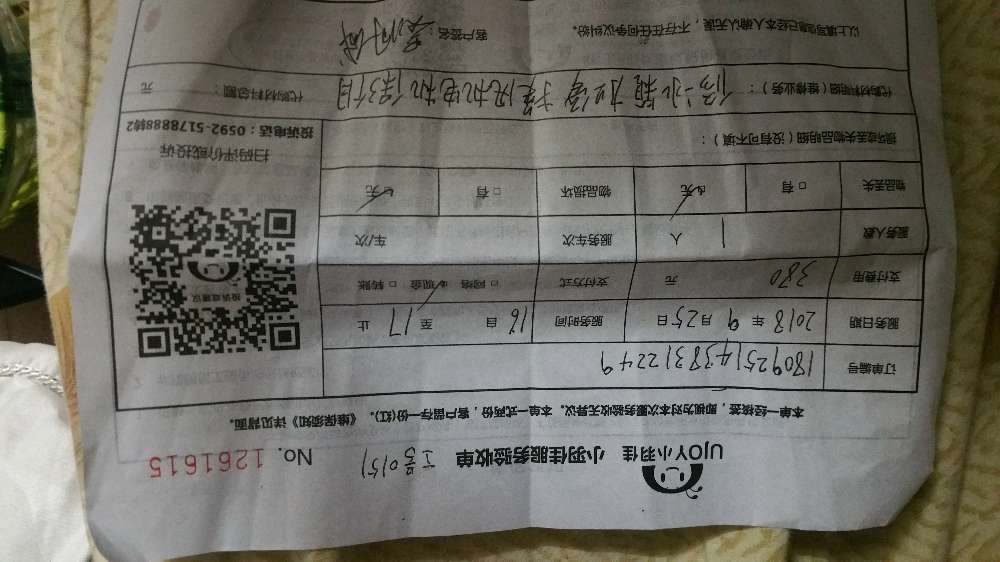 UJOY小羽佳 小羽佳服务验收单 工号0151 No. 1261615
本单一经核签，即视为对本次服务验收无异议。本单一式两份，客户留存一份(红)。《维保须知》详见背面。
订单编号 180925143831 2249
服务日期 2018 年 9 月 25 日 服务时间 16 自 至 17 止
支付费用 380 元 支付方式 □ 网络 ☑ 现金 □ 转账
服务人数 1 人 服务车次 车/次
物品丢失 □ 有 ☑ 无 物品损坏 □ 有 ☑ 无
投诉建议
扫码评价或投诉
投诉电话：0592-5178888转2
损坏或丢失物品明细（没有可不填）：
代购材料明细（维修业务）： 修冰箱 风机电机保3个月 代购材料总额： 元
以上填写信息已经本人确认无误，不存在任何争议纠纷。 客户签名：